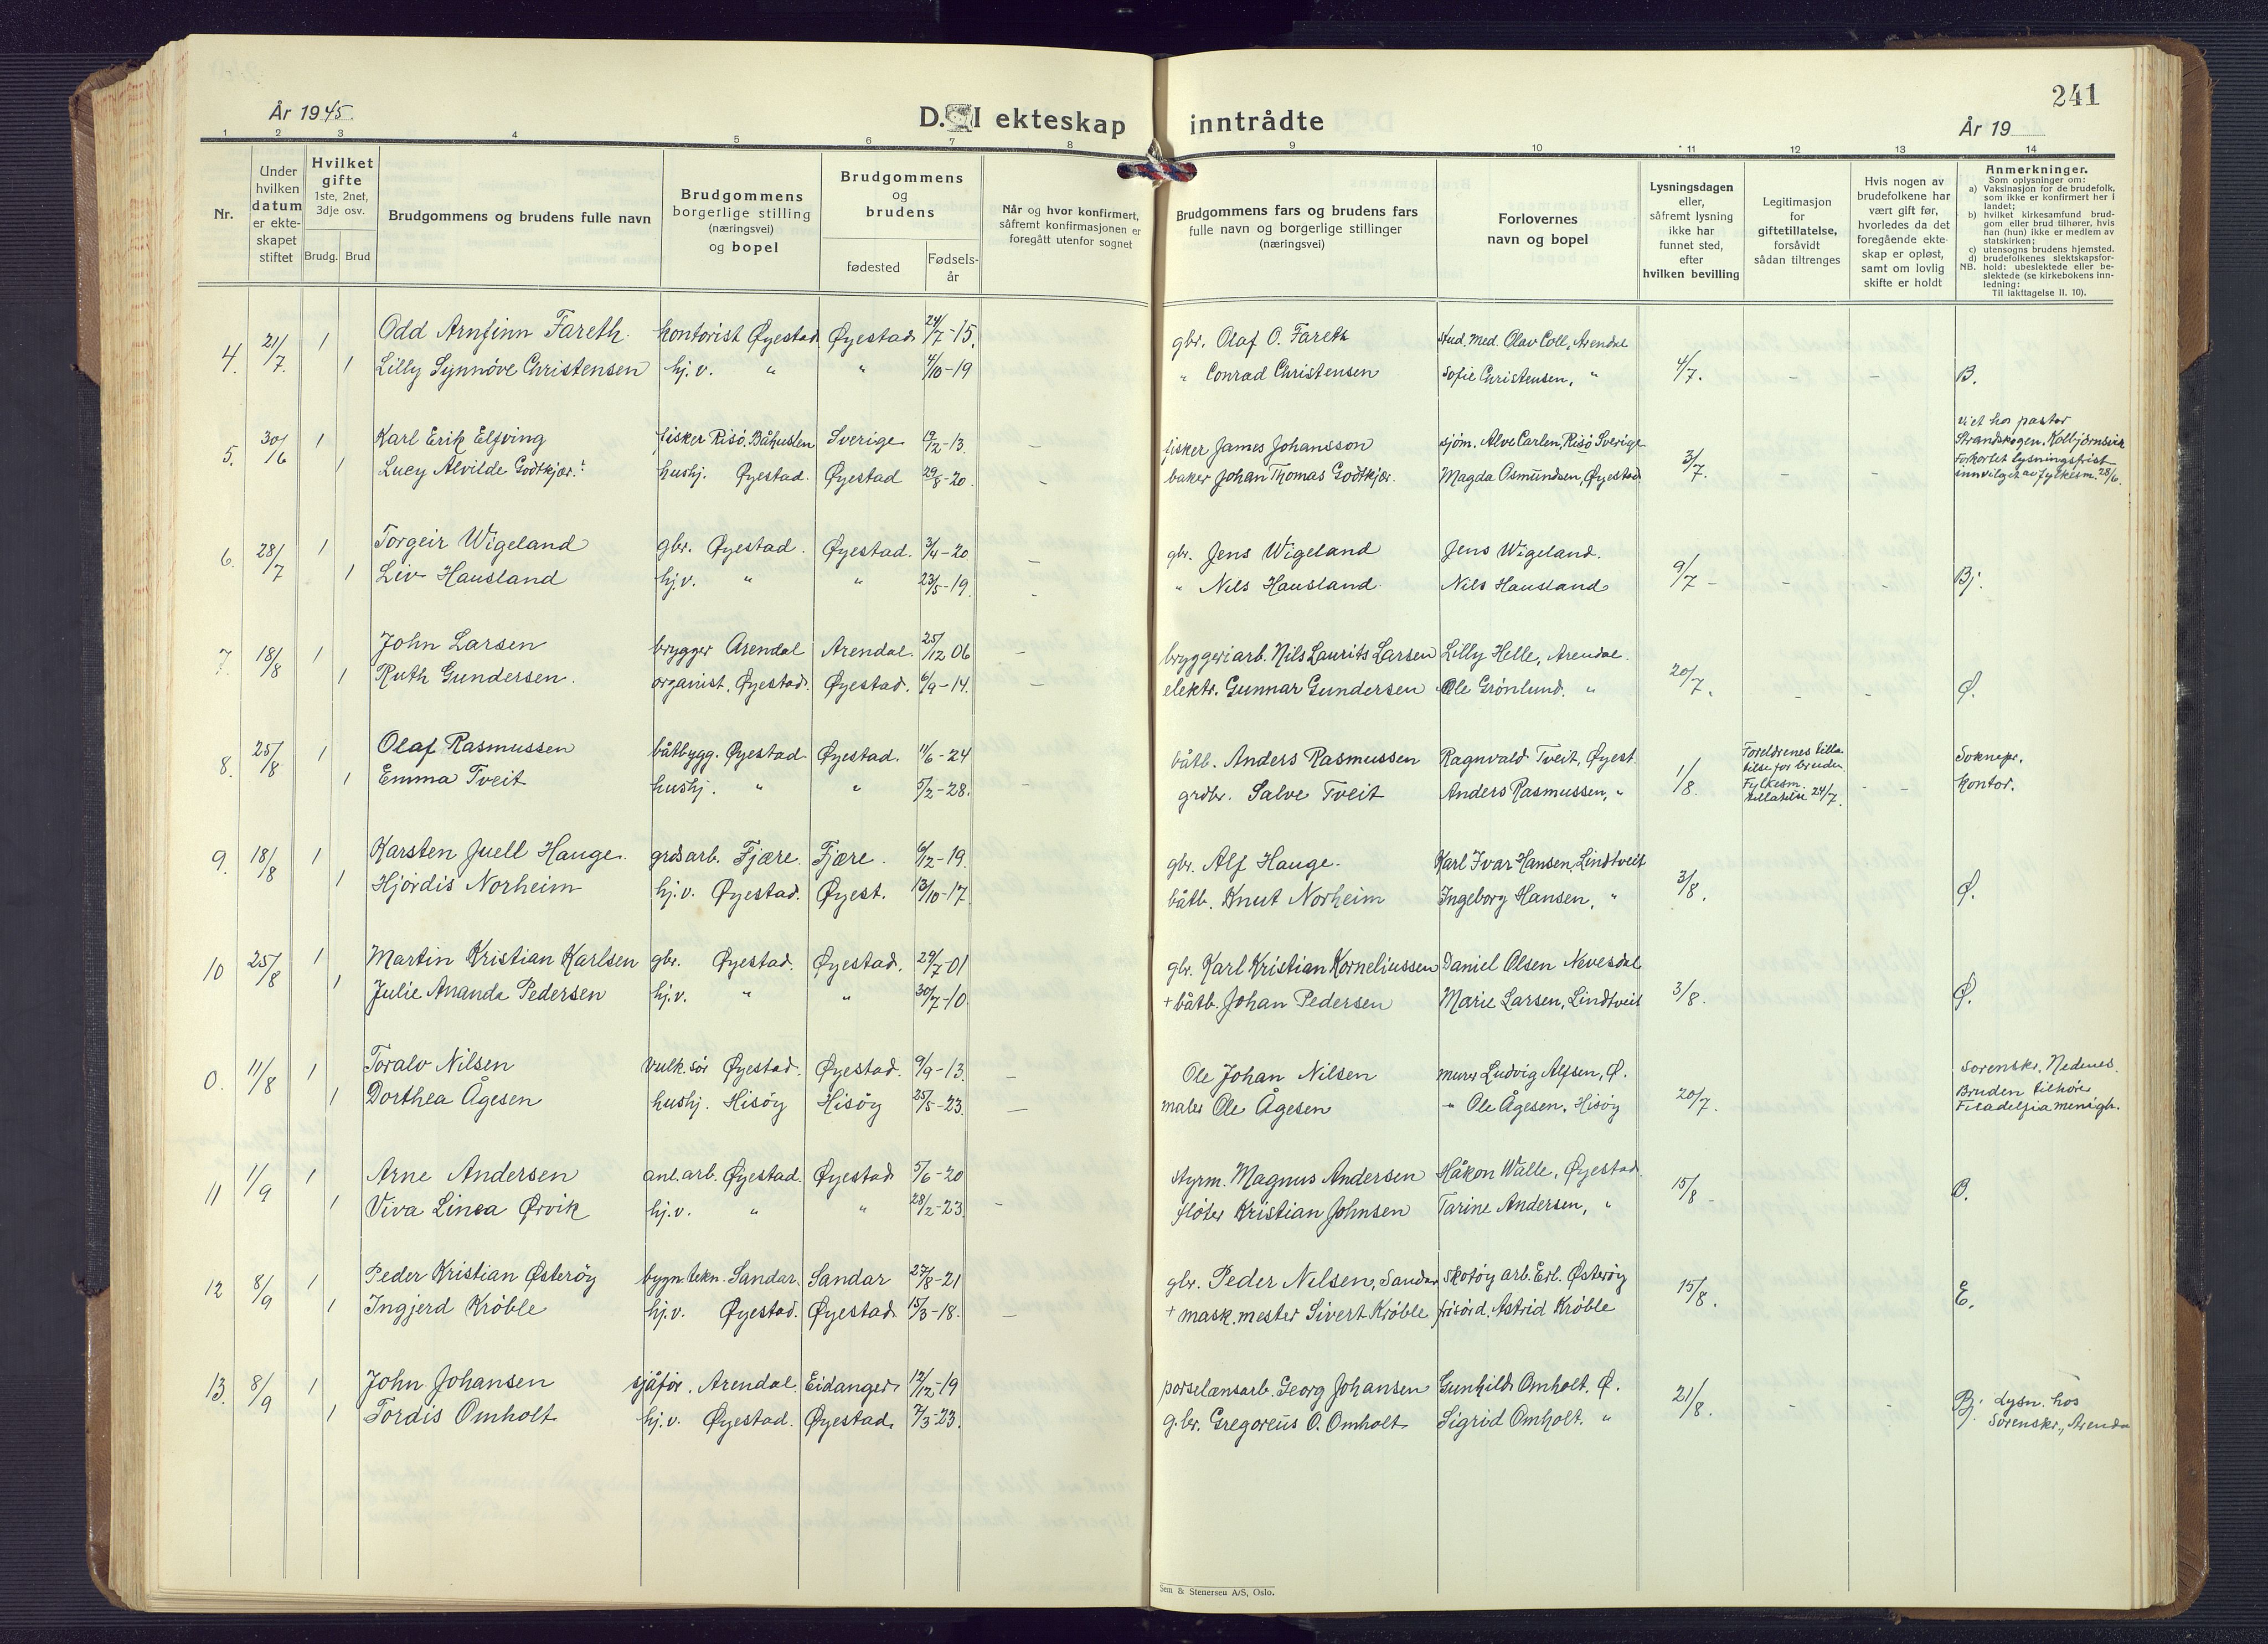 241
År 1945.
D. I ekteskap inntrådte
År 19
1 2 3 4 5 6 7 8 9 10 11 12 13 14
Nr.
Under
hvilken
datum
er ekte-
skapet
stiftet
Hvilket
gifte
1ste, 2net,
3dje osv.
Brudg. Brud
Brudgommens og brudens fulle navn
Brudgommens
borgerlige stilling
(næringsvei)
og bopel
Brudgommens
og
brudens
fødested
Fødsels-
år
Når og hvor konfirmert,
såfremt konfirmasjonen er
foregått utenfor sognet
Brudgommens fars og brudens fars
fulle navn og borgerlige stillinger
(næringsvei)
Forlovernes
navn og bopel
Lysningsdagen
eller,
såfremt lysning
ikke har
funnet sted,
efter
hvilken bevilling
Legitimasjon
for
giftetillatelse,
forsåvidt
sådan tiltrenges
Hvis nogen av
brudefolkene har
vært gift før,
hvorledes da det
foregående ekte-
skap er opløst,
samt om lovlig
skifte er holdt
Anmerkninger.
Som oplysninger om:
a) Vaksinasjon for de brudefolk,
som ikke er konfirmert her i
landet;
b) hvilket kirkesamfund brud-
gom eller brud tilhører, hvis
han (hun) ikke er medlem av
statskirken;
c) utensogns brudens hjemsted.
d) brudefolkenes slektskapsfor-
NB. hold: ubeslektede eller be-
slektede (se kirkebokens inn-
ledning:
Til iakttagelse II. 10).
4. 21/7. 1 Odd Arnfinn Fareth. kontorist Øyestad Øyestad 24/7-15. gbr. Olaf O. Fareth stud. med. Olav Coll, Arendal
1 Lilly Synnöve Christensen hj.v. " " 4/10-19 " Conrad Christensen Sofie Christensen, " 4/7. - - B.
5. 30/6 1 Karl Erik Elfving fisker Risö, Båhuslen Sverige 19/2-13. - fisker James Johansson sjöm. Alve Carlen, Risö Sverige
1 Lucy Alvilde Godtkjær. hushj. Øyestad. Øyestad 29/8-20. - baker Johan Thomas Godtkjær. Magda Osmundsen, Øyestad. 3/7.
viet hos pastor
Strandskogen, Kolbjørnsvik
Forkortet lysningsfrist
innvilget av fylkesm. 28/6.
6. 28/7 1 Torgeir Wigeland gbr. Øyestad. Øyestad. 3/4-20 - gbr. Jens Wigeland Jens Wigeland.
1 Liv Hausland hj.v. " " 23/5-19. - " Nils Hausland Nils Hausland 9/7 - - - Bj.
7. 18/8 1 John Larsen brygger Arendal Arendal. 25/12 06 - bryggeriarb. Nils Laurits Larsen Lilly Helle, Arendal.
1 Ruth Gundersen. organist, Øyestad. Øyestad. 6/9-14. - elektr. Gunnar Gundersen Ole Grönlund. " 20/7. - - Ø.
8. 25/8 1 Olaf Rasmussen båtbygg. Øyestad Øyestad. 11/6-24 båtb. Anders Rasmussen Ragnvald Tveit, Øyest.
1 Emma Tveit hushj. " " 5/2-28. - grdbr. Salve Tveit Anders Rasmussen, " 1/8.
Foreldrenes tilla-
telse for bruden.
Fylkesm.
tillatelse 24/7.
- -
Soknepr.
kontor.
9. 18/8 1 Karsten Juell Hauge. grdsarb. Fjære. Fjære. 6/12-19. gbr. Alf Hauge. Karl Ivar Hansen, Lindtveit
1 Hjördis Norheim hj.v. Øyestad. Øyest. 13/10-17. båtb. Knut Norheim Ingeborg Hansen, " 3/8. Ø.
10 25/8 1 Martin Kristian Karlsen gbr. Øyestad. Øyestad. 29/7-01 gbr. Karl Kristian Korneliussen Daniel Olsen Nevesdal
1 Julie Ananda Pedersen hj.v. " " 30/7-10. + båtb. Johan Pedersen Marie Larsen, Lindtveit 3/8. Ø.
0. 11/8 1 Toralv Nilsen vulk.sör Øyestad. Øyestad. 9/9-13. - Ole Johan Nilsen murer Ludvig Alfsen, Ø.
1 Dorthea Ågesen hushj. Hisöy Hisöy 25/5-23. - maler Ole Ågesen " Ole Ågesen, Hisöy 20/7.
Sorenskr. Nedenes.
Bruden tilhörer
Filadelfia menigh.
11 1/9 1 Arne Andersen anl.arb. Øyestad. Øyestad 5/6-20 styrm. Magnus Andersen Håkon Walle, Øyestad.
1 Viva Linea Ørvik hj.v. " " 28/2-23. - flöter Kristian Johnsen Tarine Andersen, " 15/8 - B.
12 8/9 1 Peder Kristian Østeröy bygn.tekn. Sandar. Sandar 27/8-21 gbr. Peder Nilsen, Sandar Skotöy arb. Erl. Østeröy
1 Ingjerd Kröble hj.v. Øyestad. Øyestad. 15/3-18. - + mask.mester Sivert Kröble frisörd. Astrid Kröble 15/8. E.
13. 8/9 1 John Johansen sjåför, Arendal. Eidanger 12/12-19 porselænsarb. Georg Johansen Gunhild Omholt, Ø.
1 Tordis Omholt hj.v. Øyestad. Øyestad. 7/3-23. gbr. Gregoreüs O. Omholt Sigrid Omholt. " 21/8. - - Bj. Lysn. hos
Sorenskr., Arenda
Sem & Stenersen A/S, Oslo.